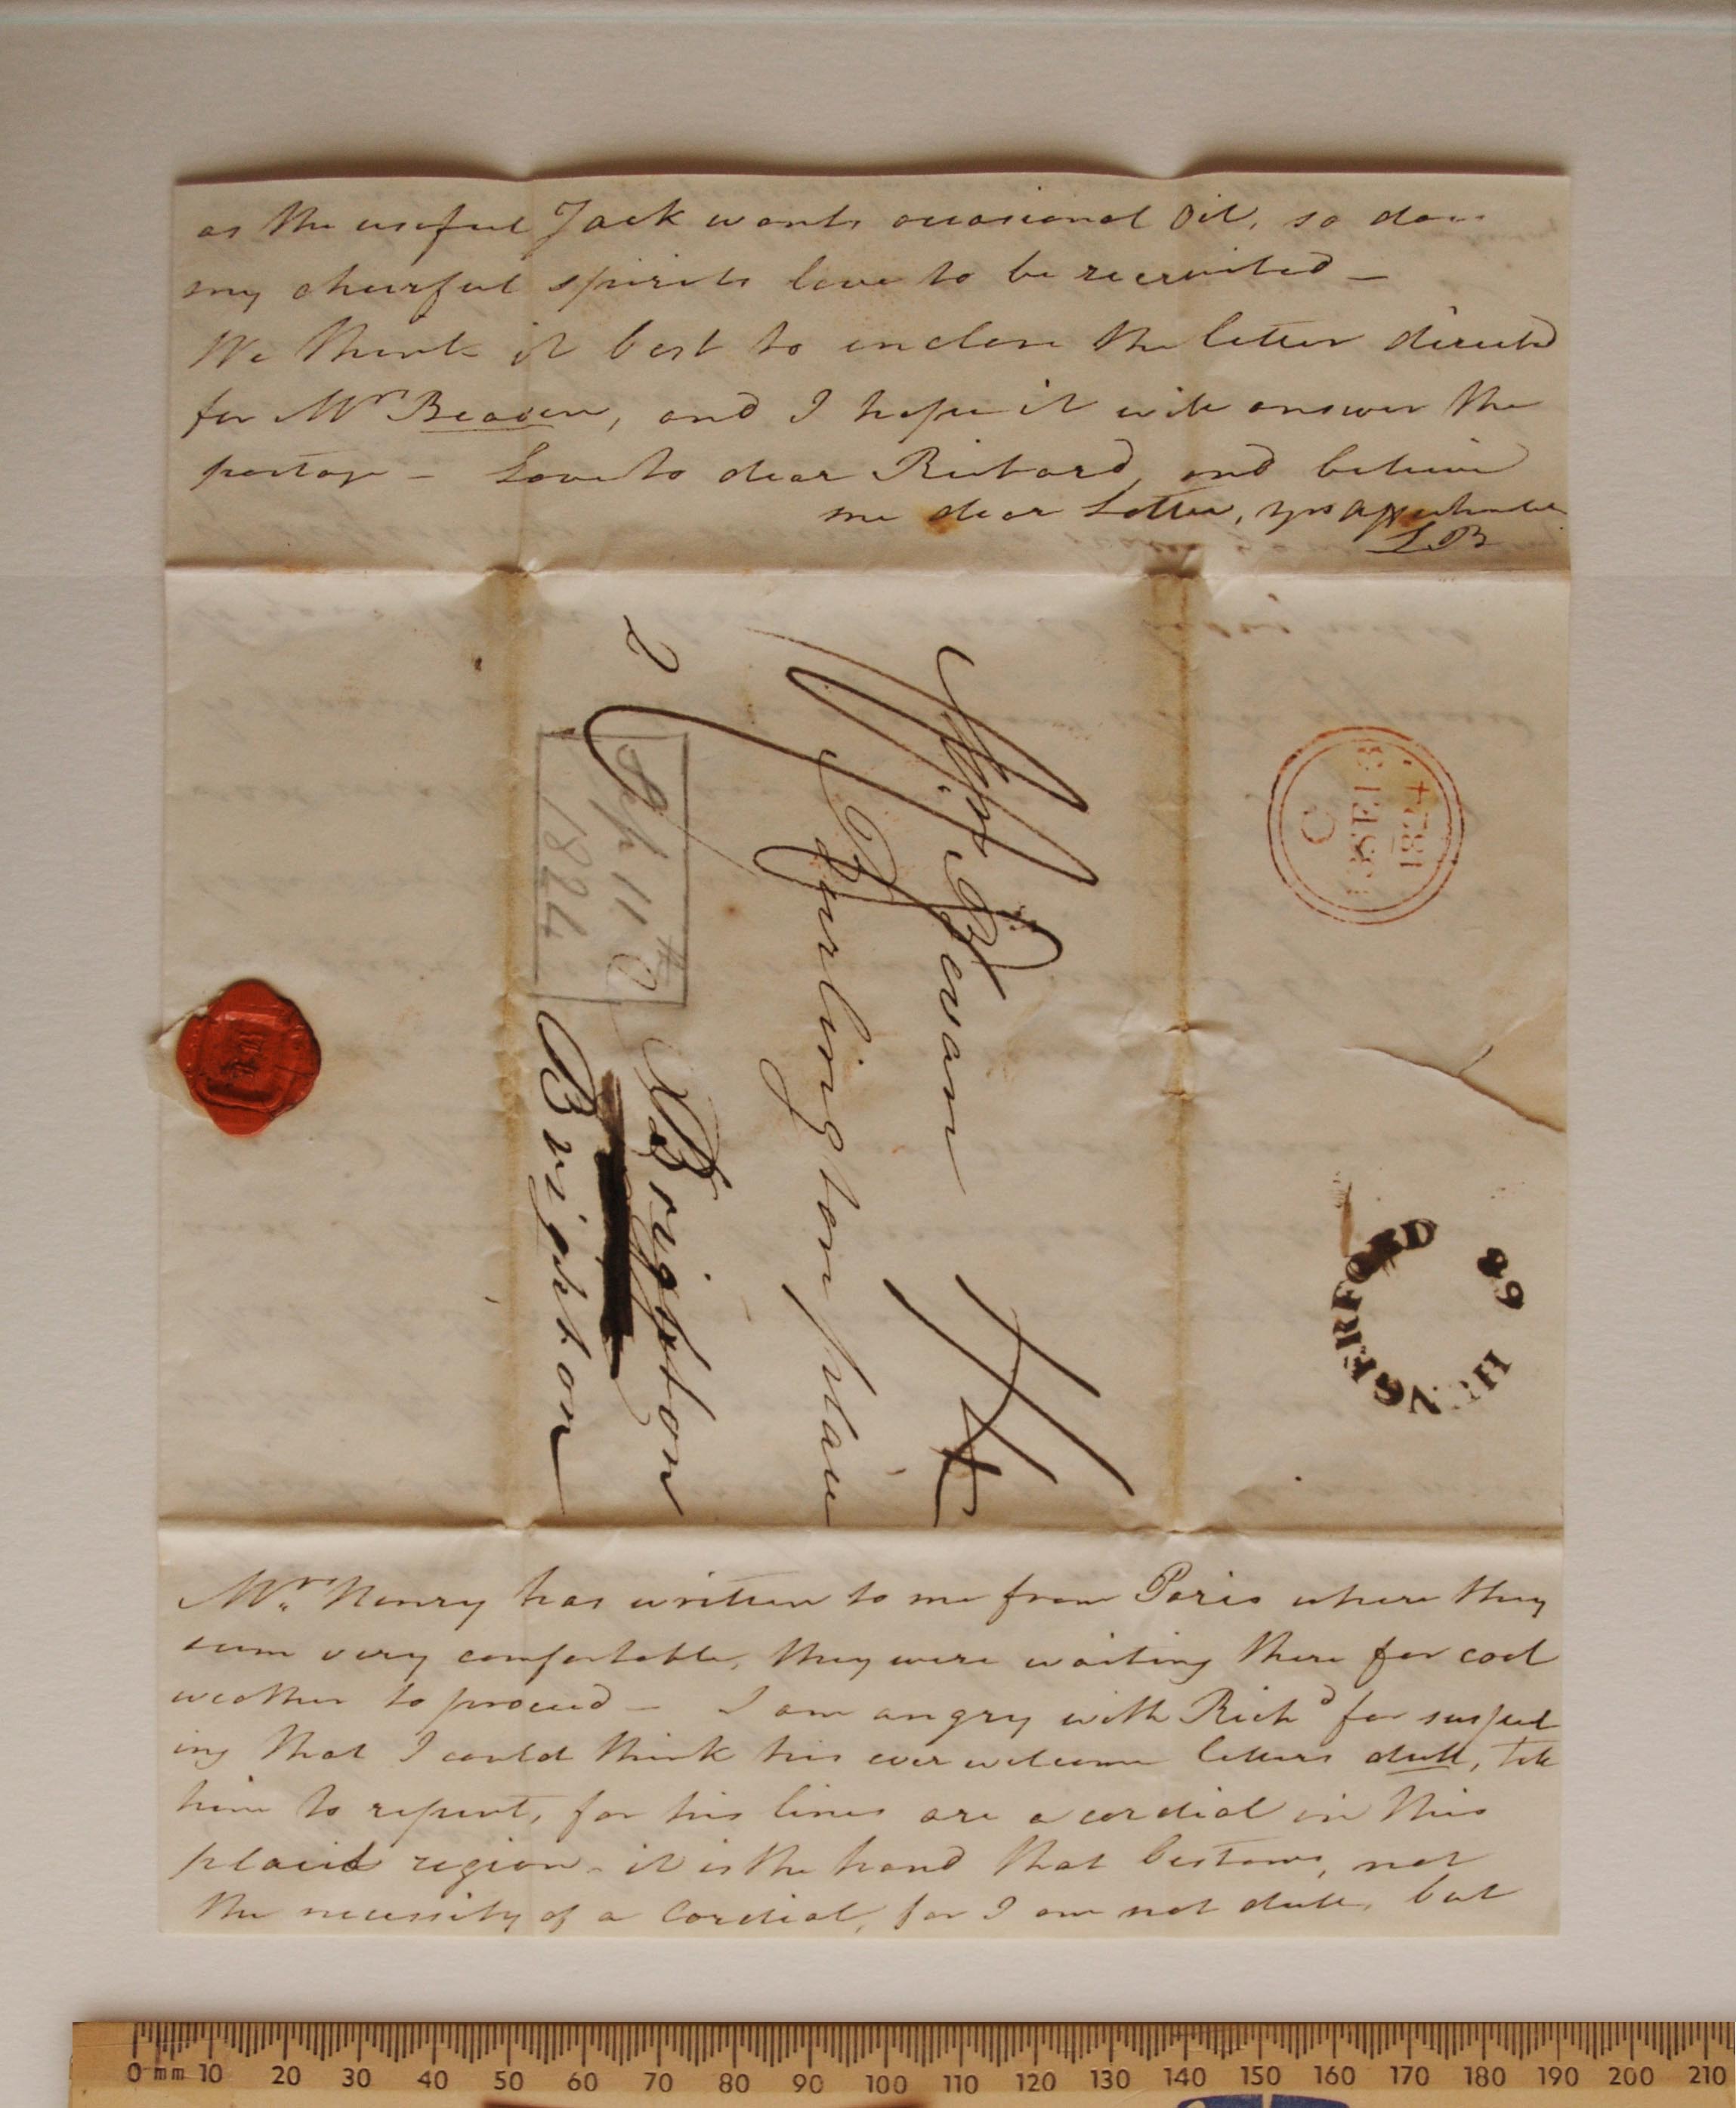 as the useful Jack wants occasional Oil, so does
my cheerful spirits love to be recruited –
We think it best to enclose the letter directed
for Mr Beaven, and I hope it will answer the
postage – Love to dear Richard, and believe
me dear Lottie, yrs affectionately
LB
Mrs Bevan
Burlington place
Brighton
Brighton
2
4
Sep 11th
1824
C
13 SE 13
1824
HUNGERFORD
68
Mrs. Henry has written to me from Paris where they
seem very comfortable, they were waiting there for cool
weather to proceed – I am angry with Richd for suspect
ing that I could think his ever welcome letters dull, tell
him to repent, for his lines are a cordial in this
placid region – it is the hand that bestows, not
the necessity of a Cordial, for I am not dull, but
0 mm 10 20 30 40 50 60 70 80 90 100 110 120 130 140 150 160 170 180 190 200 210